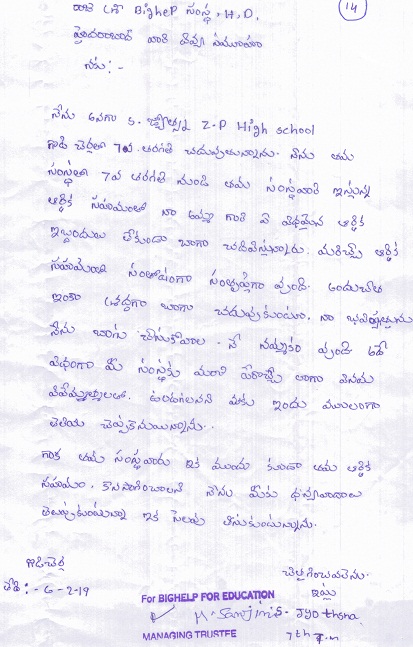 రాజ శ్రీ BigheP సంస్థ, H, D,
14
హైదరాబాద్ వారి దివ్య సముఖమునకు:-
నేను అనగా S. జ్యోత్స్న Z.P High school
గాడిచెర్లలో 7వ తరగతి చదువుతున్నాను. నేను తమ
సంస్థలో 7వ తరగతి నుండి తమ సంస్థవారి ఇస్తున్న
ఆర్థిక సహాయంతో నా అమ్మ గారి ఏ విధమైన ఆర్థిక
ఇబ్బందులు లేకుండా బాగా చదివిస్తున్నారు. మరిచ్చె ఆర్థిక
సహాయంతో సంతోషంగా సంతృప్తిగా వుంది. అందుచేత
ఇంకా శ్రద్ధగా బాగా చదువుకుంటూ, నా భవిష్యత్తును
నేను బాగు చేసుకోవాల. నే నమ్మకం వుంది. అదే
విధంగా మీ సంస్థకు మంచి పేరొచ్చే లాగా వినయ
విధేయ్యతలతో. ఉండగలనని మీకు ఇందు మూలంగా
తెలియ చెప్పుకొనుచున్నాను.
గాక తమ సంస్థవారు ఇక ముందు కుండా తమ ఆర్థిక
సహాయం. కొనసాగించాలని నేను మీకు ధన్యవాదాలు
తెలుపుకుంటున్నా ఇక సెలవు తీసుకుంటున్నాను.
గాడిచెర్ల
తేది:- 6-2-19
చిత్తగించవలెను.
ఇట్లు
For BIGHELP FOR EDUCATION
S. Jyothsna
MANAGING TRUSTEE
7th